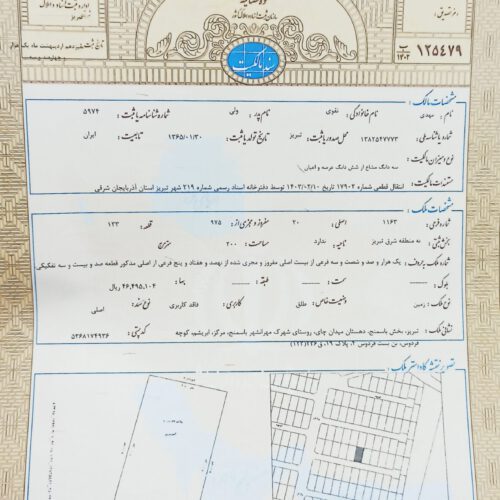 اداره ثبت اسناد و املاک
تاریخ ثبت: هیجدهم اردیبهشت ماه یک هزار و چهارصد و سه
سازمان ثبت اسناد و املاک کشور
سند مالکیت
۱۲۵۴۷۹
ب ۱۴۰۲
مشخصات مالک :
نام : مهدی نام خانوادگی : تقوی نام پدر : ولی شماره شناسنامه یا ثبت : ۵۹۷۴
شماره ملی : ۱۳۸۲۵۴۷۷۷۳ محل صدور یا ثبت : تبریز تاریخ تولد یا ثبت : ۱۳۶۵/۰۱/۳۰ تابعیت : ایران
نوع و میزان مالکیت : سه دانگ مشاع از شش دانگ عرصه و اعیان
مستندات مالکیت : انتقال قطعی شماره ۱۷۹۰۲ تاریخ ۱۴۰۳/۰۲/۱۰ توسط دفترخانه اسناد رسمی شماره ۲۱۹ شهر تبریز استان آذربایجان شرقی
مشخصات ملک :
شماره فرعی : ۱۱۶۳ اصلی : ۲۰ مفروز و مجزی از : ۹۷۵ قطعه : ۱۲۳
بخش ثبتی : به منطقه شرق تبریز ناحیه : ندارد مساحت : ۲۰۰ مترمربع
شماره ملک به حروف : یک هزار و صد و شصت و سه فرعی از بیست اصلی مفروز و مجزی شده از نهصد و هفتاد و پنج فرعی از اصلی مذکور قطعه صد و بیست و سه تفکیکی
بلوک : سمت : طبقه : بها : ۴۶,۴۹۵,۱۰۴ ریال
نوع ملک : زمین وضعیت خاص : طلق کاربری : فاقد کاربری نوع سند : اصلی
نشانی ملک : تبریز، بخش باسمنج، دهستان میدان چای، روستای شهرک مهرانشهر باسمنج، مرکز، ابریشم، کوچه فردوس، بن بست فردوس ۲، پلاک ۱۹، ق۲۲۶(۱۲۳) کد پستی : ۵۳۶۸۱۷۴۹۳۶
تصویر نقشه کاداستر ملک :